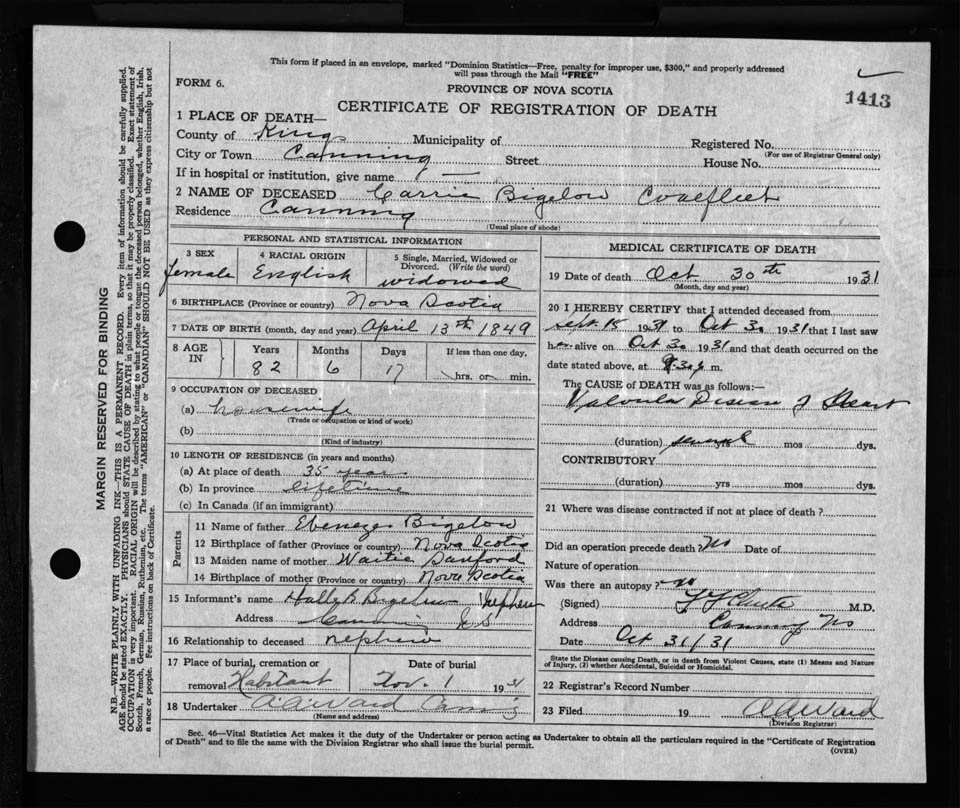 This form if placed in an envelope, marked "Dominion Statistics—Free, penalty for improper use, $300," and properly addressed
will pass through the Mail "FREE"
FORM 6.
PROVINCE OF NOVA SCOTIA
1413
CERTIFICATE OF REGISTRATION OF DEATH
1 PLACE OF DEATH—
County of Kings Municipality of Registered No.
(For use of Registrar General only)
City or Town Canning Street House No.
If in hospital or institution, give name —
2 NAME OF DECEASED Carrie Bigelow Coalfleet
Residence Canning
(Usual place of abode)
PERSONAL AND STATISTICAL INFORMATION
3 SEX 4 RACIAL ORIGIN 5 Single, Married, Widowed or
Divorced. (Write the word)
female English widowed
6 BIRTHPLACE (Province or country) Nova Scotia
7 DATE OF BIRTH (month, day and year) April 13th 1849
8 AGE IN Years Months Days If less than one day,
82 6 17 hrs. or min.
9 OCCUPATION OF DECEASED
(a) housewife
(Trade or occupation or kind of work)
(b)
(Kind of industry)
10 LENGTH OF RESIDENCE (in years and months)
(a) At place of death 35 years
(b) In province lifetime
(c) In Canada (if an immigrant)
Parents
11 Name of father Ebenezer Bigelow
12 Birthplace of father (Province or country) Nova Scotia
13 Maiden name of mother Waitie Sanford
14 Birthplace of mother (Province or country) Nova Scotia
15 Informant's name Bigelow nephew
Address Canning N S
16 Relationship to deceased nephew
17 Place of burial, cremation or Date of burial
removal Habitant Nov. 1 1931
18 Undertaker A A Ward Canning
(Name and address)
MEDICAL CERTIFICATE OF DEATH
19 Date of death Oct 30th 1931
(Month, day and year)
20 I HEREBY CERTIFY that I attended deceased from
Sept. 15 1931 to Oct 30 1931 that I last saw
her alive on Oct 30 1931 and that death occurred on the
date stated above, at m.
The CAUSE of DEATH was as follows:—
Valvular Disease of Heart
(duration) several yrs mos dys.
CONTRIBUTORY
(duration) yrs mos dys.
21 Where was disease contracted if not at place of death?
Did an operation precede death? No Date of
Nature of operation
Was there an autopsy? no
(Signed) M.D.
Address Canning NS
Date Oct 31/31
State the Disease causing Death, or in death from Violent Causes, state (1) Means and Nature
of Injury, (2) whether Accidental, Suicidal or Homicidal.
22 Registrar's Record Number
23 Filed 19 A A Ward
(Division Registrar)
Sec. 46—Vital Statistics Act makes it the duty of the Undertaker or person acting as Undertaker to obtain all the particulars required in the "Certificate of Registration
of Death" and to file the same with the Division Registrar who shall issue the burial permit.
(OVER)
MARGIN RESERVED FOR BINDING
N.B.—WRITE PLAINLY WITH UNFADING INK—THIS IS A PERMANENT RECORD. Every item of information should be carefully supplied.
AGE should be stated EXACTLY. PHYSICIANS should STATE CAUSE OF DEATH in plain terms, so that it may be properly classified. Exact statement of
OCCUPATION is very important. RACIAL ORIGIN will be described by stating to what people or tongue the deceased person belonged, whether English, Irish,
Scotch, French, German, Russian, Ruthenian, etc. The terms "AMERICAN" or "CANADIAN" SHOULD NOT BE USED as they express citizenship but not
a race or people. See instructions on back of Certificate.